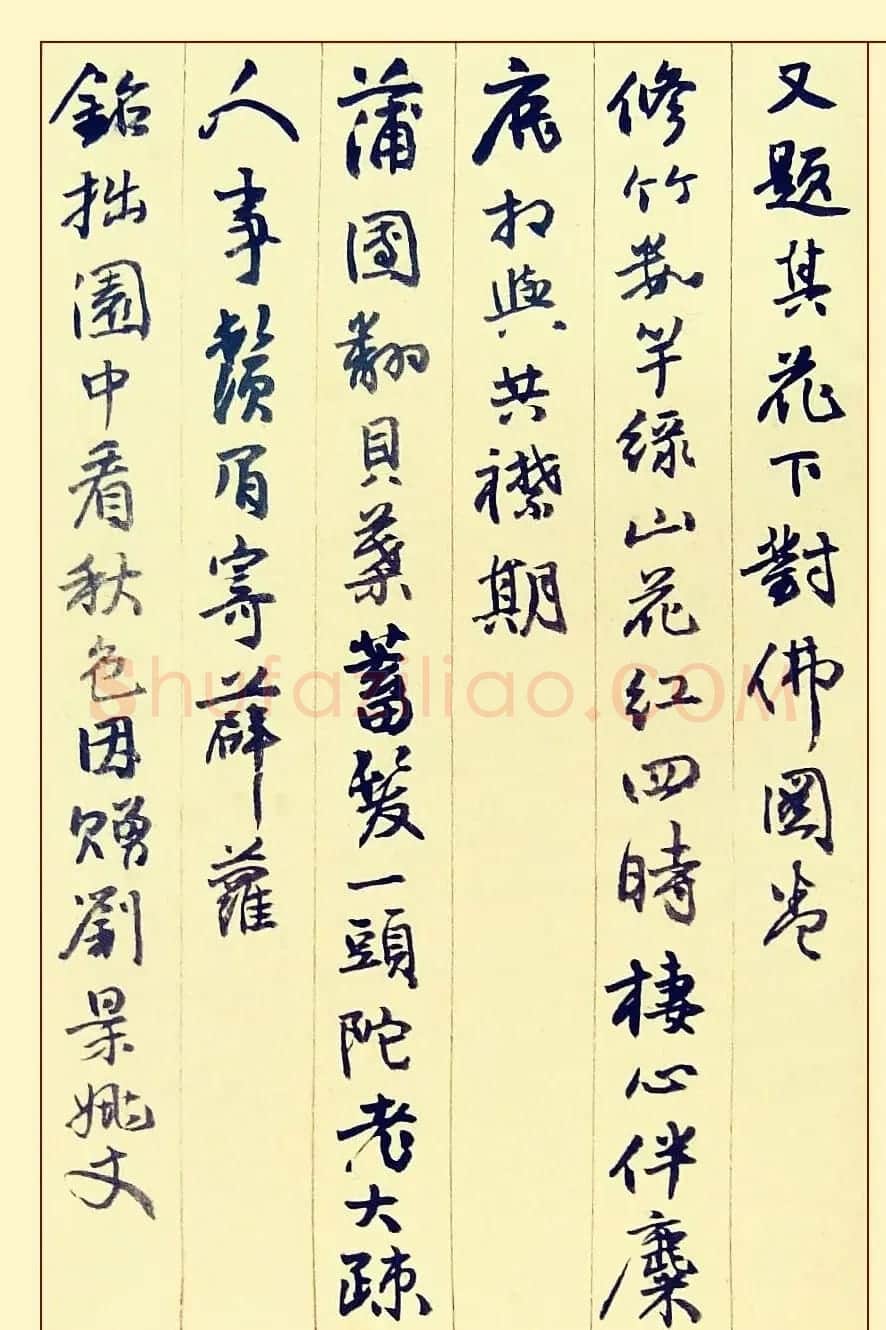 又題其花下對佛圖卷
修竹數竿綠山花紅四時棲心伴麋
鹿相與共襟期
蒲團翻貝葉蓄髮一頭陀老大疎
人事鬚眉寄薜蘿
拙園中看秋色因贈劉景姚丈
shufaziliao.COM